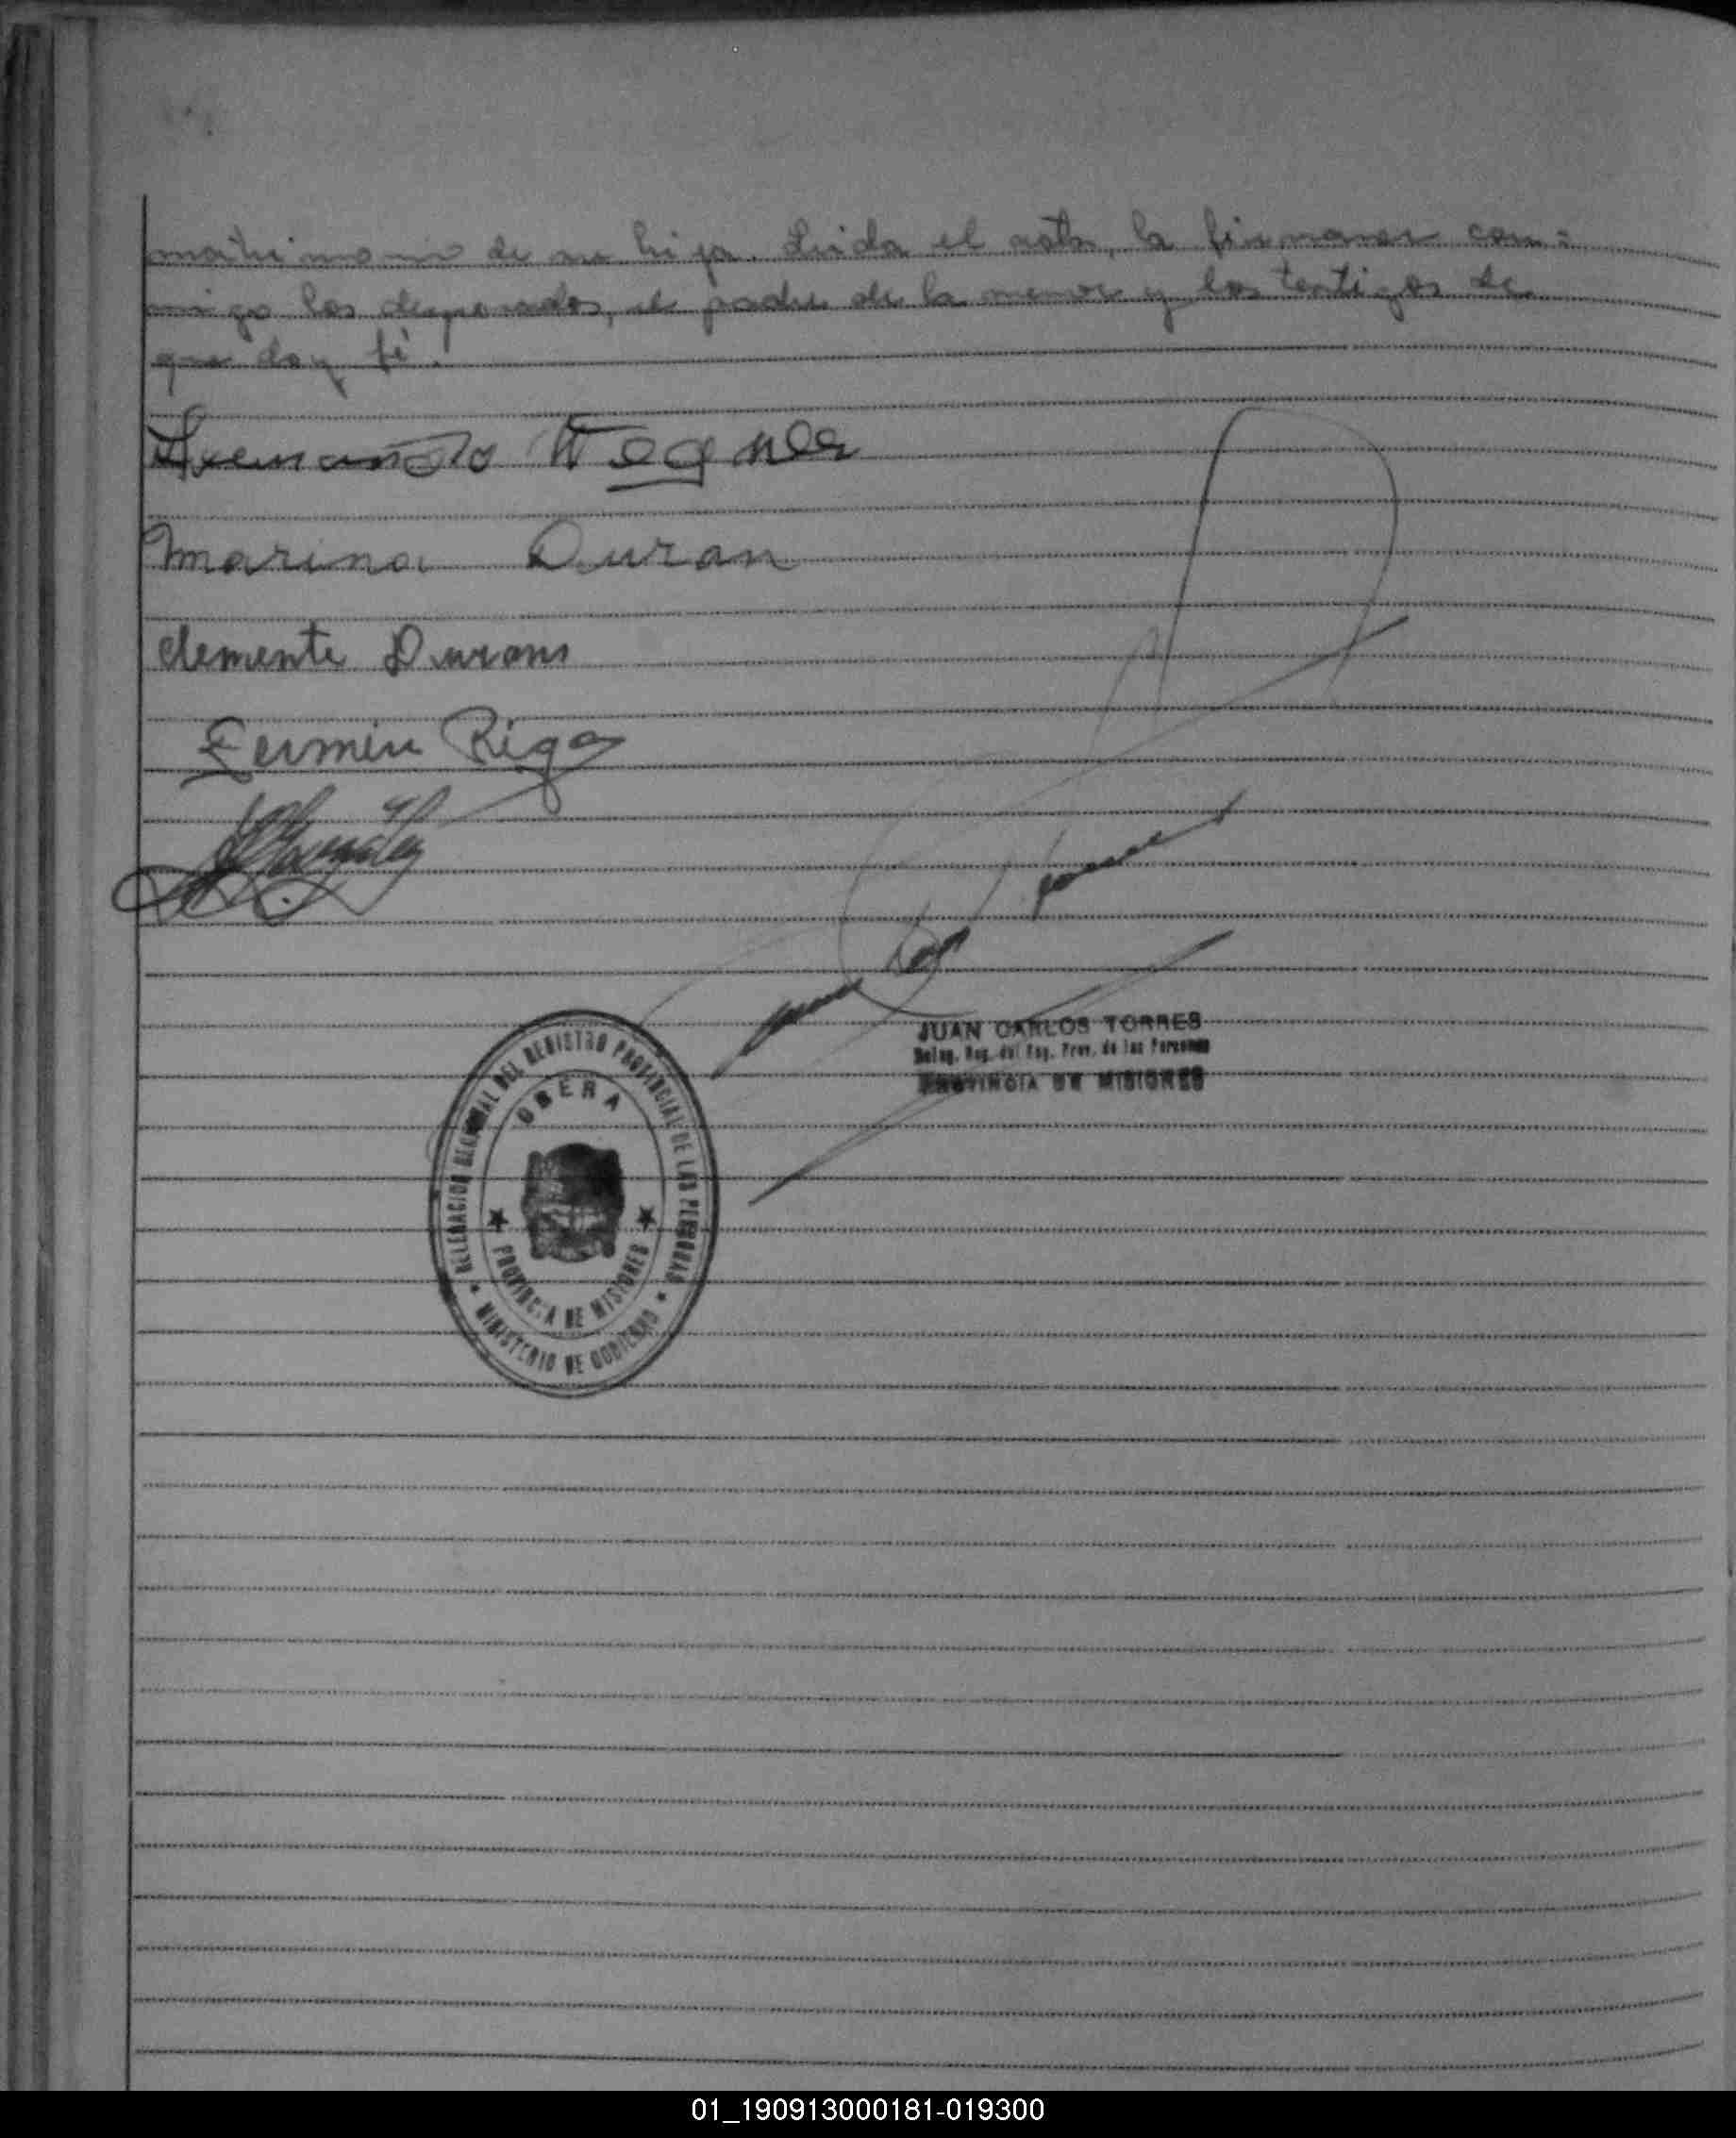 matrimonio de su hija. Leida el acta, la firmaron con-
migo los desposados, el padre de la menor y los testigos de
que doy fé.
Wegner
Marina Duran
Clemente Duran
Fermin Riga
JUAN CARLOS TORRES
Deleg. Reg. del Reg. Prov. de las Personas
PROVINCIA DE MISIONES
DELEGACION REGIONAL DEL REGISTRO PROVINCIAL DE LAS PERSONAS
OBERA
PROVINCIA DE MISIONES
MINISTERIO DE GOBIERNO
01_190913000181-019300